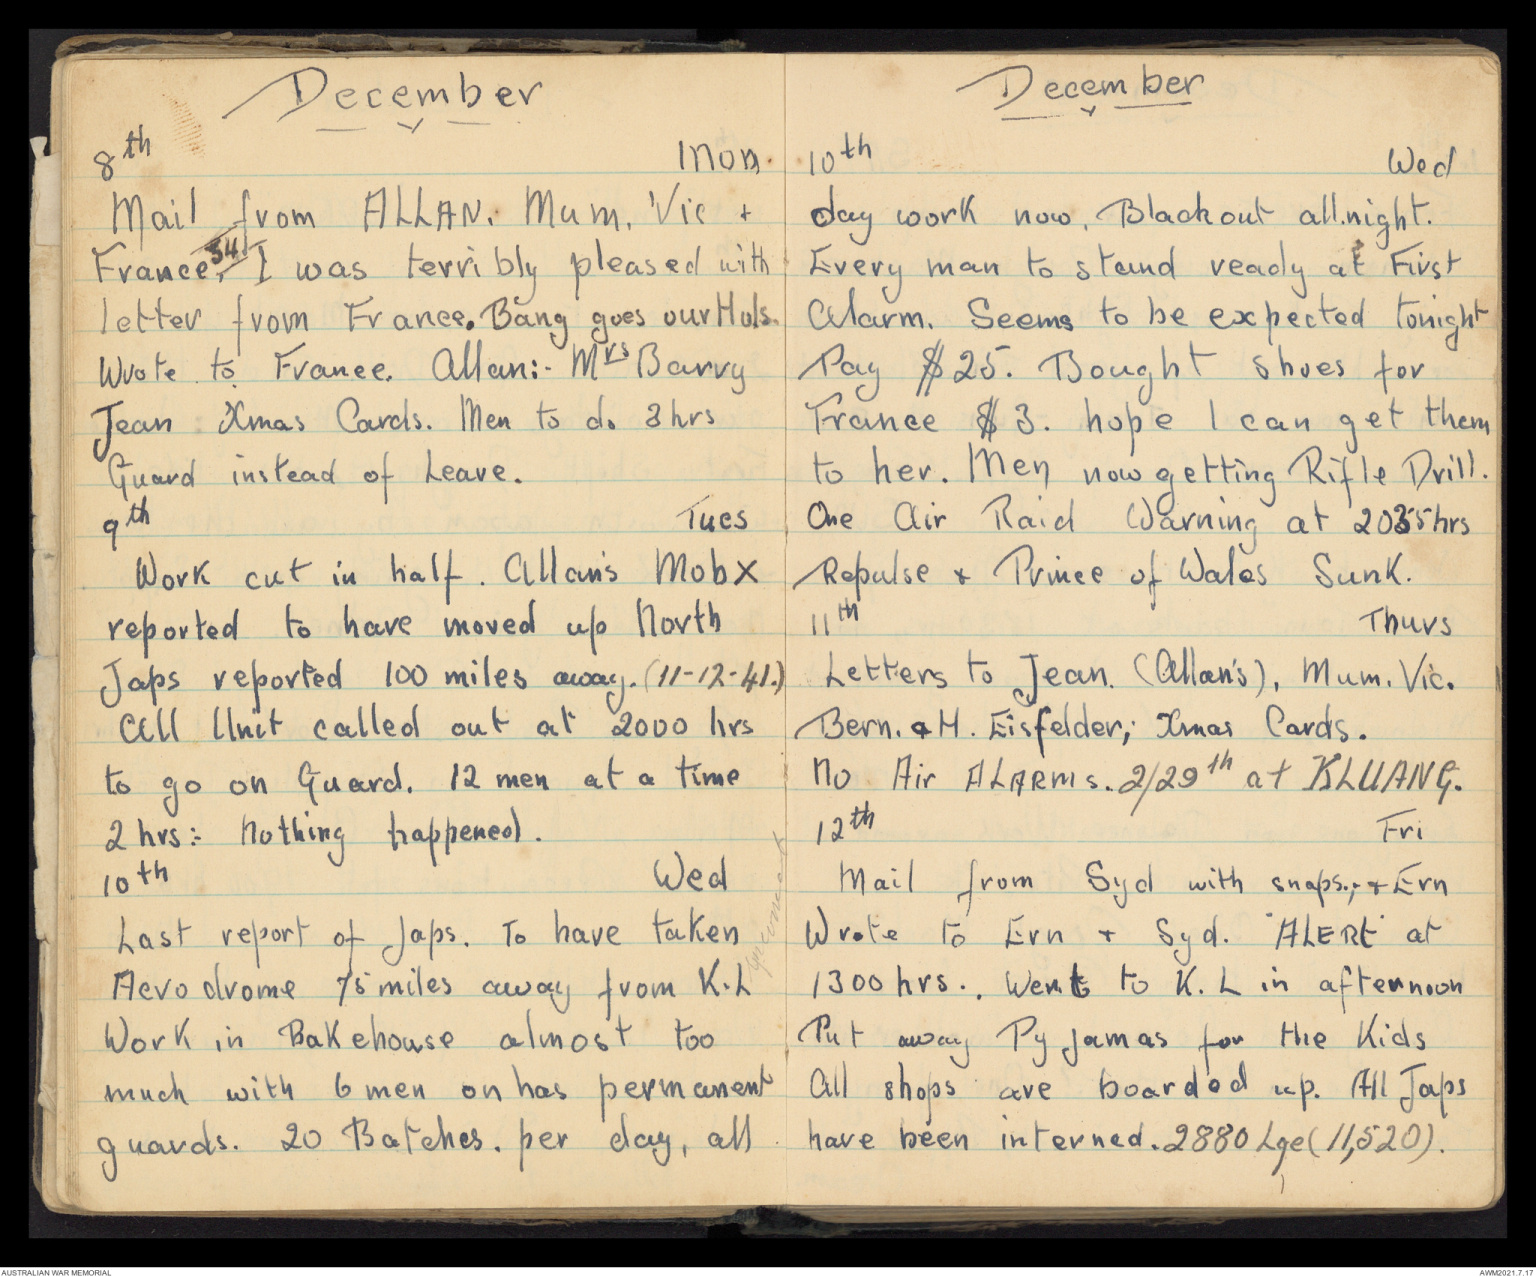 December
8th Mon
Mail from ALLAN. Mum. Vic +
France. 34. I was terribly pleased with
letter from France. Bang goes our Hols.
Wrote to France. Allan:- Mrs Barry
Jean Xmas Cards. Men to do 3 hrs
Guard instead of Leave.
9th Tues
Work cut in half. Allan's Mob X
reported to have moved up North
Japs reported 100 miles away. (11-12-41.)
All Unit called out at 2000 hrs
to go on Guard. 12 men at a time
2 hrs:- Nothing happened.
10th Wed
Last report of Japs. To have taken
Aerodrome 75 miles away from K.L
Work in Bakehouse almost too
much with 6 men on has permanent
guards. 20 Batches. per day, all
December
10th Wed
day work now. Blackout all.night.
Every man to stand ready at First
Alarm. Seems to be expected tonight
Pay $25. Bought shoes for
France $3. hope I can get them
to her. Men now getting Rifle Drill.
One Air Raid Warning at 2035 hrs
Repulse + Prince of Wales Sunk.
11th Thurs
Letters to Jean. (Allan's), Mum. Vic.
Bern. & H. Eisfelder; Xmas Cards.
No Air ALARMS. 2/29th at KLUANG.
12th Fri
Mail from Syd with snaps.; + Ern
Wrote to Ern + Syd. "ALERT" at
1300 hrs.. Went to K. L in afternoon
Put away Pyjamas for the Kids
All shops are boarded up. All Japs
have been interned. 2880 Lge (11,520).
AUSTRALIAN WAR MEMORIAL
AWM2021.7.17